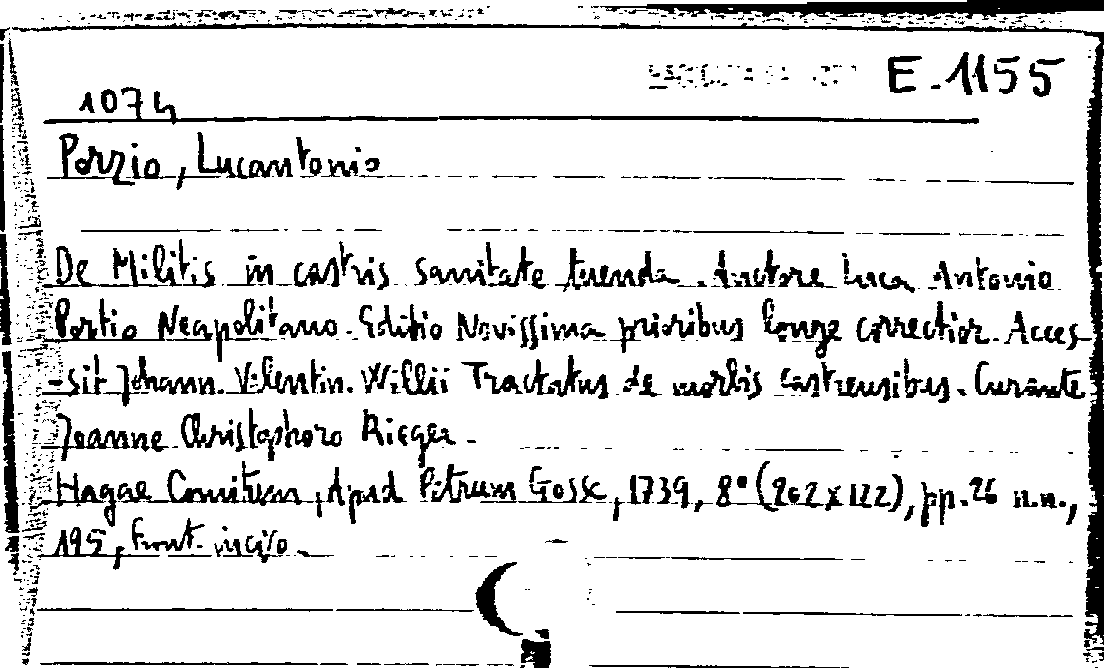 E.1155
1074
Porzio, Lucantonio
De Militis in castris sanitate tuenda. Auctore Luca Antonio
Portio Neapolitano. Editio Novissima prioribus longe correctior. Acces-
-sit Johann. Valentin. Willii Tractatus de morbis castrensibus. Curante
Joanne Christophoro Rieger.
Hagae Comitum, Apud Petrum Gosse, 1739, 8° (202x122), pp. 26 n.n.,
195, front. inciso.